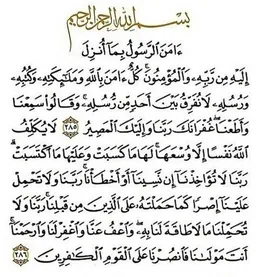 بسم الله الرحمن الرحيم
ءَامَنَ ٱلرَّسُولُ بِمَآ أُنزِلَ
إِلَيْهِ مِن رَّبِّهِۦ وَٱلْمُؤْمِنُونَ ۚ كُلٌّ ءَامَنَ بِٱللَّهِ وَمَلَـٰٓئِكَتِهِۦ وَكُتُبِهِۦ
وَرُسُلِهِۦ لَا نُفَرِّقُ بَيْنَ أَحَدٍ مِّن رُّسُلِهِۦ ۚ وَقَالُوا۟ سَمِعْنَا
وَأَطَعْنَا ۖ غُفْرَانَكَ رَبَّنَا وَإِلَيْكَ ٱلْمَصِيرُ ٢٨٥ لَا يُكَلِّفُ
ٱللَّهُ نَفْسًا إِلَّا وُسْعَهَا ۚ لَهَا مَا كَسَبَتْ وَعَلَيْهَا مَا ٱكْتَسَبَتْ ۗ
رَبَّنَا لَا تُؤَاخِذْنَآ إِن نَّسِينَآ أَوْ أَخْطَأْنَا ۚ رَبَّنَا وَلَا تَحْمِلْ
عَلَيْنَآ إِصْرًا كَمَا حَمَلْتَهُۥ عَلَى ٱلَّذِينَ مِن قَبْلِنَا ۚ رَبَّنَا وَلَا
تُحَمِّلْنَا مَا لَا طَاقَةَ لَنَا بِهِۦ ۖ وَٱعْفُ عَنَّا وَٱغْفِرْ لَنَا وَٱرْحَمْنَآ ۚ
أَنتَ مَوْلَىٰنَا فَٱنصُرْنَا عَلَى ٱلْقَوْمِ ٱلْكَـٰفِرِينَ ٢٨٦